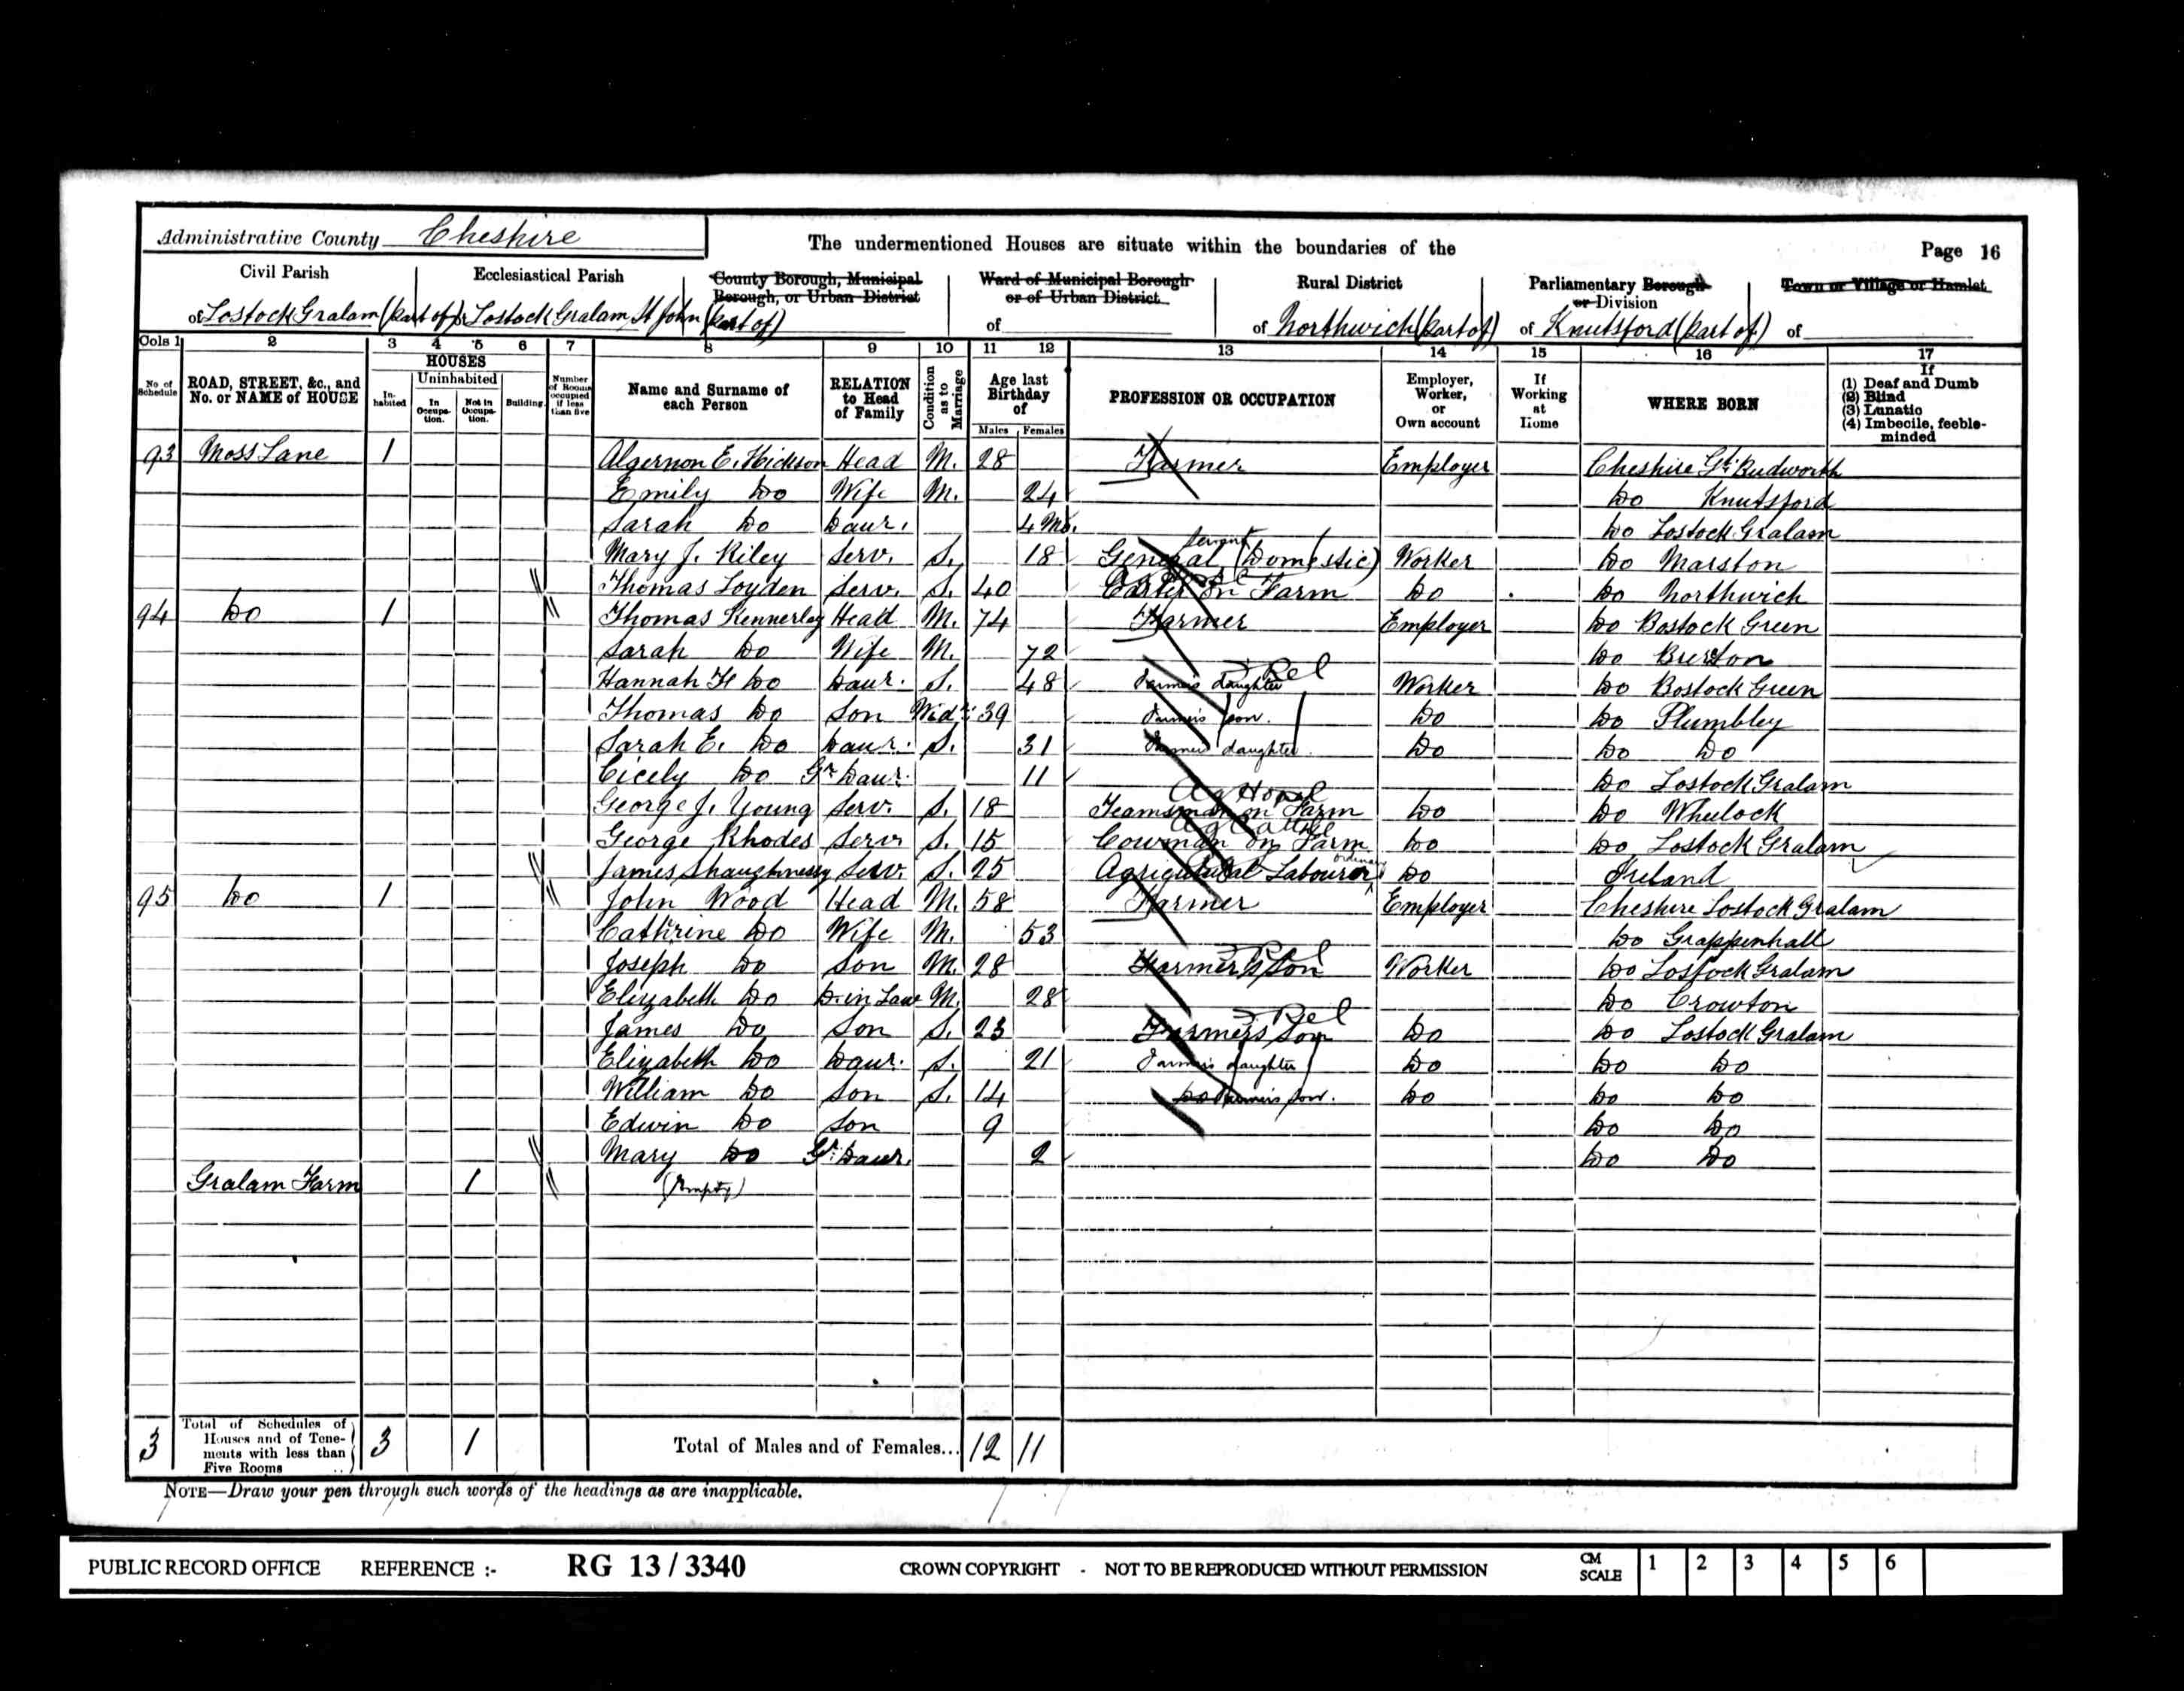 Administrative County Cheshire
The undermentioned Houses are situate within the boundaries of the
Page 16
Civil Parish
of Lostock Gralam (part of)
Ecclesiastical Parish
of Lostock Gralam St John (part of)
County Borough, Municipal Borough, or Urban District
Ward of Municipal Borough or of Urban District
of
Rural District
of Northwich (part of)
Parliamentary Borough or Division
of Knutsford (part of)
Town or Village or Hamlet
of
Cols 1 2 3 4 5 6 7 8 9 10 11 12 13 14 15 16 17
No. of Schedule
ROAD, STREET, &c., and No. or NAME of HOUSE
HOUSES
Inhabited
Uninhabited
In Occupation.
Not in Occupation.
Building.
Number of Rooms occupied if less than five
Name and Surname of each Person
RELATION to Head of Family
Condition as to Marriage
Age last Birthday of
Males Females
PROFESSION OR OCCUPATION
Employer, Worker, or Own account
If Working at Home
WHERE BORN
If
(1) Deaf and Dumb
(2) Blind
(3) Lunatic
(4) Imbecile, feeble-minded
93 Moss Lane 1 Algernon E. Hickson Head M. 28 Farmer Employer Cheshire Gt. Budworth
Emily Do Wife M. 24 Do Knutsford
Sarah Do Daur. 4 Mo. Do Lostock Gralam
Mary J. Riley Serv. S. 18 General servant (Domestic) Worker Do Marston
Thomas Loyden Serv. S. 40 Carter on Farm Do Do Northwich
94 Do 1 Thomas Kennerley Head M. 74 Farmer Employer Do Bostock Green
Sarah Do Wife M. 72 Do Brereton
Rel
Hannah H Do Daur. S. 48 Farmer's daughter Worker Do Bostock Green
Thomas Do Son Widr. 39 Farmer's son. Do Do Plumbley
Sarah E. Do Daur. S. 31 Farmer's daughter. Do Do Do
Cicely Do Gr Daur. 11 Do Lostock Gralam
Ag Horse
George J. Young Serv. S. 18 Teamsman on Farm Do Do Wheelock
Ag Cattle
George Rhodes Serv S. 15 Cowman on Farm Do Do Lostock Gralam
James Shaughnessy Serv. S. 25 Agricultural Labourer ordinary Do Ireland
95 Do 1 John Wood Head M. 58 Farmer Employer Cheshire Lostock Gralam
Cathrine Do Wife M. 53 Do Grappenhall
Rel
Joseph Do Son M. 28 Farmer's Son Worker Do Lostock Gralam
Elizabeth Do D. in Law M. 28 Do Crowton
Rel
James Do Son S. 23 Farmer's Son Do Do Lostock Gralam
Elizabeth Do Daur. S. 21 Farmer's daughter Do Do Do
William Do Son S. 14 Do Farmer's son. Do Do Do
Edwin Do Son 9 Do Do
Mary Do Gr. Daur. 2 Do Do
Gralam Farm 1 (Empty)
3 Total of Schedules of Houses and of Tenements with less than Five Rooms 3 1 Total of Males and of Females... 12 11
NOTE—Draw your pen through such words of the headings as are inapplicable.
PUBLIC RECORD OFFICE REFERENCE :- RG 13 / 3340 CROWN COPYRIGHT - NOT TO BE REPRODUCED WITHOUT PERMISSION CM SCALE 1 2 3 4 5 6